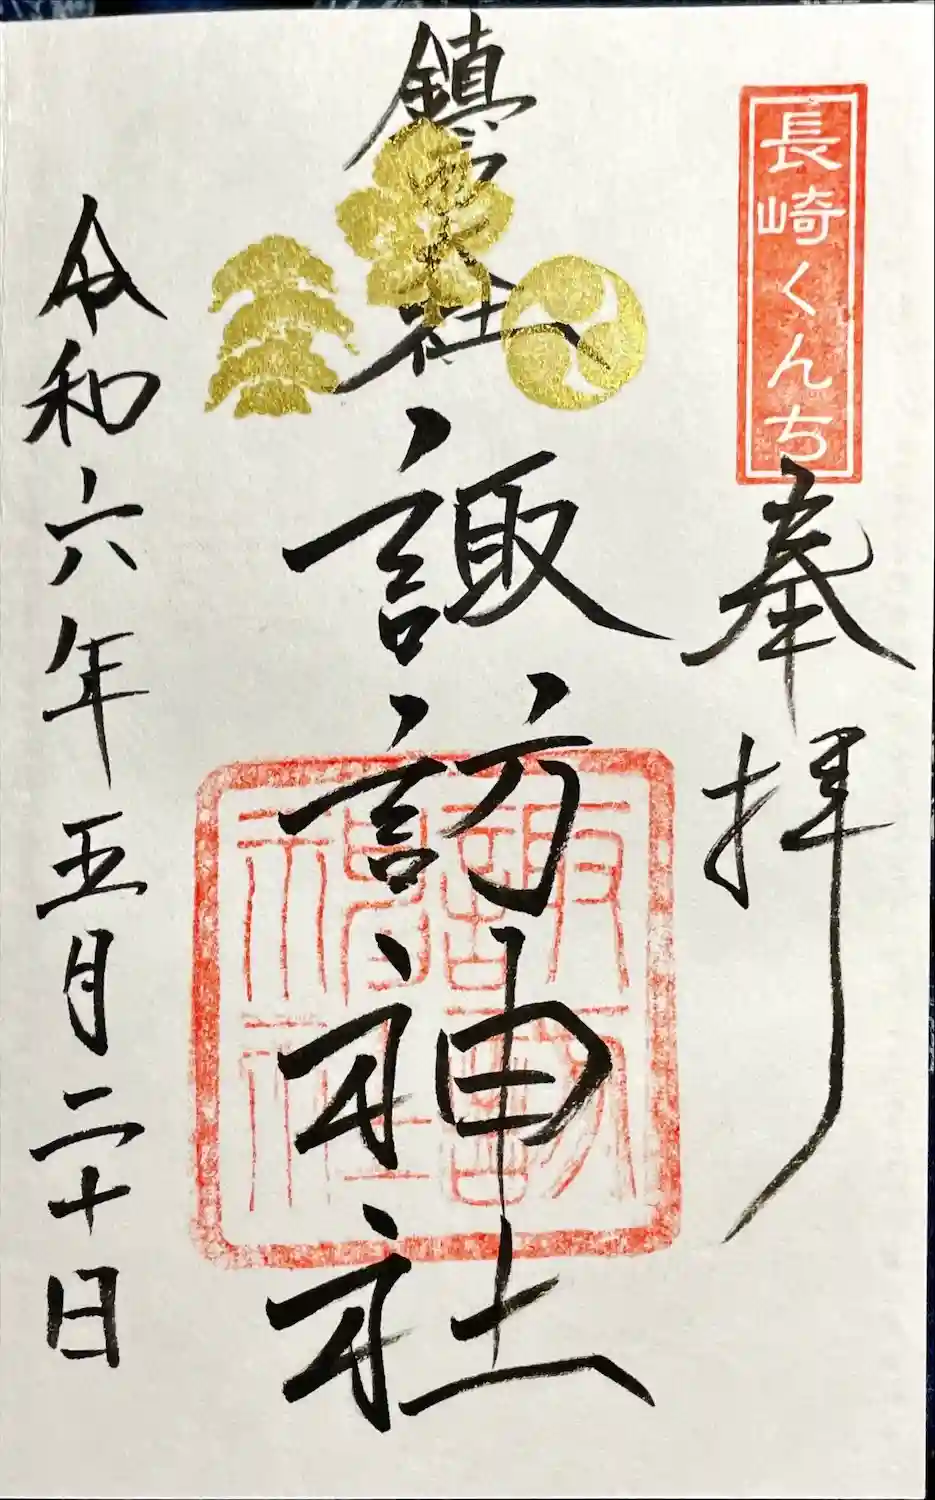 長崎くんち
奉拝
鎮西大社
諏訪神社
諏訪神社
令和六年五月二十日